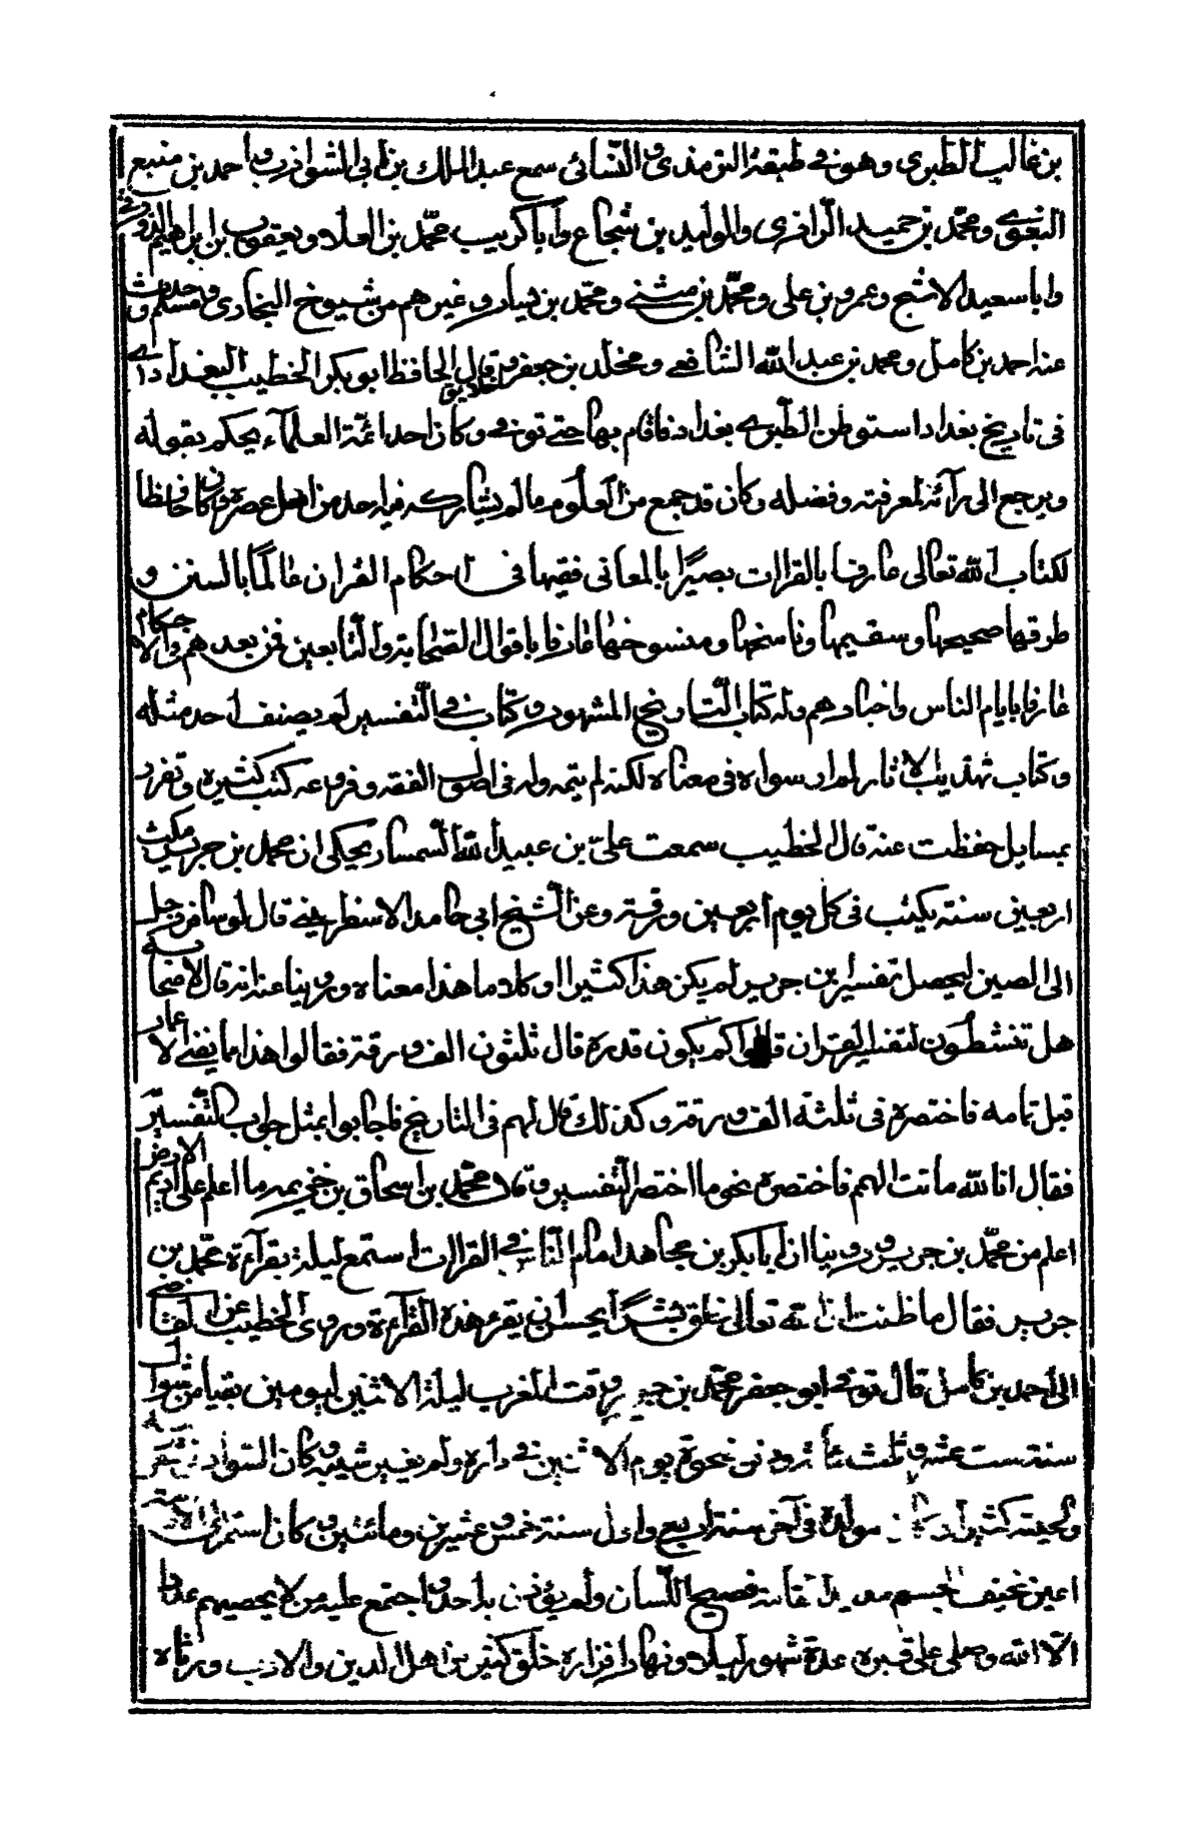 بن غالب الطبري وهو في طبقة الترمذي و النسائي سمع عبد الملك بن ابي الشوارب و احمد بن منيع
البغوي و محمد بن حميد الرازي والوليد بن شجاع وابا كريب محمد بن العلاء ويعقوب بن ابراهيم الدورقي
وابا سعيد الاشج وعمرو بن علي و محمد بن مثنى و محمد بن بشار و غيرهم من شيوخ البخاري و مسلم و حدث
عنه احمد بن كامل و محمد بن عبد الله الشافعي و مخلد بن جعفر و خلايق قال الحافظ ابو بكر الخطيب البغدادي
في تاريخ بغداد استوطن الطبري بغداد فاقام بها حتى توفي و كان احد ائمة العلماء يحكم بقوله
ويرجع الى رائه لمعرفته و فضله و كان قد جمع من العلوم ما لم يشاركه فيه احد من اهل عصره فكان حافظا
لكتاب الله تعالى عارفا بالقراات بصيرا بالمعاني فقيها في احكام القران عالما بالسنن و
طرقها صحيحها و سقيمها وناسخها و منسوخها عارفا باقوال الصحابة والتابعين فمن بعدهم والاحكام
عارفا بايام الناس واخبارهم وله كتاب التاريخ المشهور و كتاب في التفسير لم يصنف احد مثله
و كتاب تهذيب الاثار لم ار سواه في معناه لكنه لم يتمه وله في اصول الفقه و فروعه كتب كثيرة و تفرد
بمسايل حفظت عنه قال الخطيب سمعت علي بن عبيد الله السمسار يحكى ان محمد بن جرير مكث
اربعين سنة يكتب في كل يوم اربعين ورقة وعن الشيخ ابي حامد الاسفرايني قال لو سافر رجل
الى الصين ليحصل تفسير بن جرير لم يكن هذا كثيرا او كلاما هذا معناه وروينا عنه انه قال لاصحابه
هل تنشطون لتفسير القران قالوا كم يكون قدره قال ثلثون الف ورقة فقالوا هذا ما يفنى الاعمار
قبل تمامه فاختصره في ثلثة الف ورقة وكذلك قال لهم في التاريخ فاجابوا بمثل جواب التفسير
فقال انا لله ماتت الهمم فاختصره نحو ما اختصر التفسير وقال محمد بن اسحاق بن خزيمه ما اعلم على اديم الارض
اعلم من محمد بن جرير و روينا ان ابا بكر بن مجاهد امام الناس في القراات استمع ليلة بقراءة محمد بن
جرير فقال ما ظننت ان الله تعالى خلق بشرا يحسن ان يقرء هذه القراءة وروى الخطيب عن القاضي
الى احمد بن كامل قال توفي ابو جعفر محمد بن جرير وقت المغرب ليلة الاثنين ليومين بقيا من شوال
سنة ست عشر و ثلث مائة ودفن ضحوة يوم الاثنين في داره ولم يغير شيبه و كان السواد في شعر
ولحيته كثيرا مولده في آخر سنة اربع و اول سنة خمس و عشرين و مائتين و كان اسمر الى الادمة
اعين نحيف الجسم مديد القامة فصيح اللسان ولم يؤذن به احد واجتمع عليه من لا يحصيهم عددا
الا الله وصلى على قبره عدة شهور ليلا ونهارا فزاره خلق كثير من اهل الدين والادب ورثاه